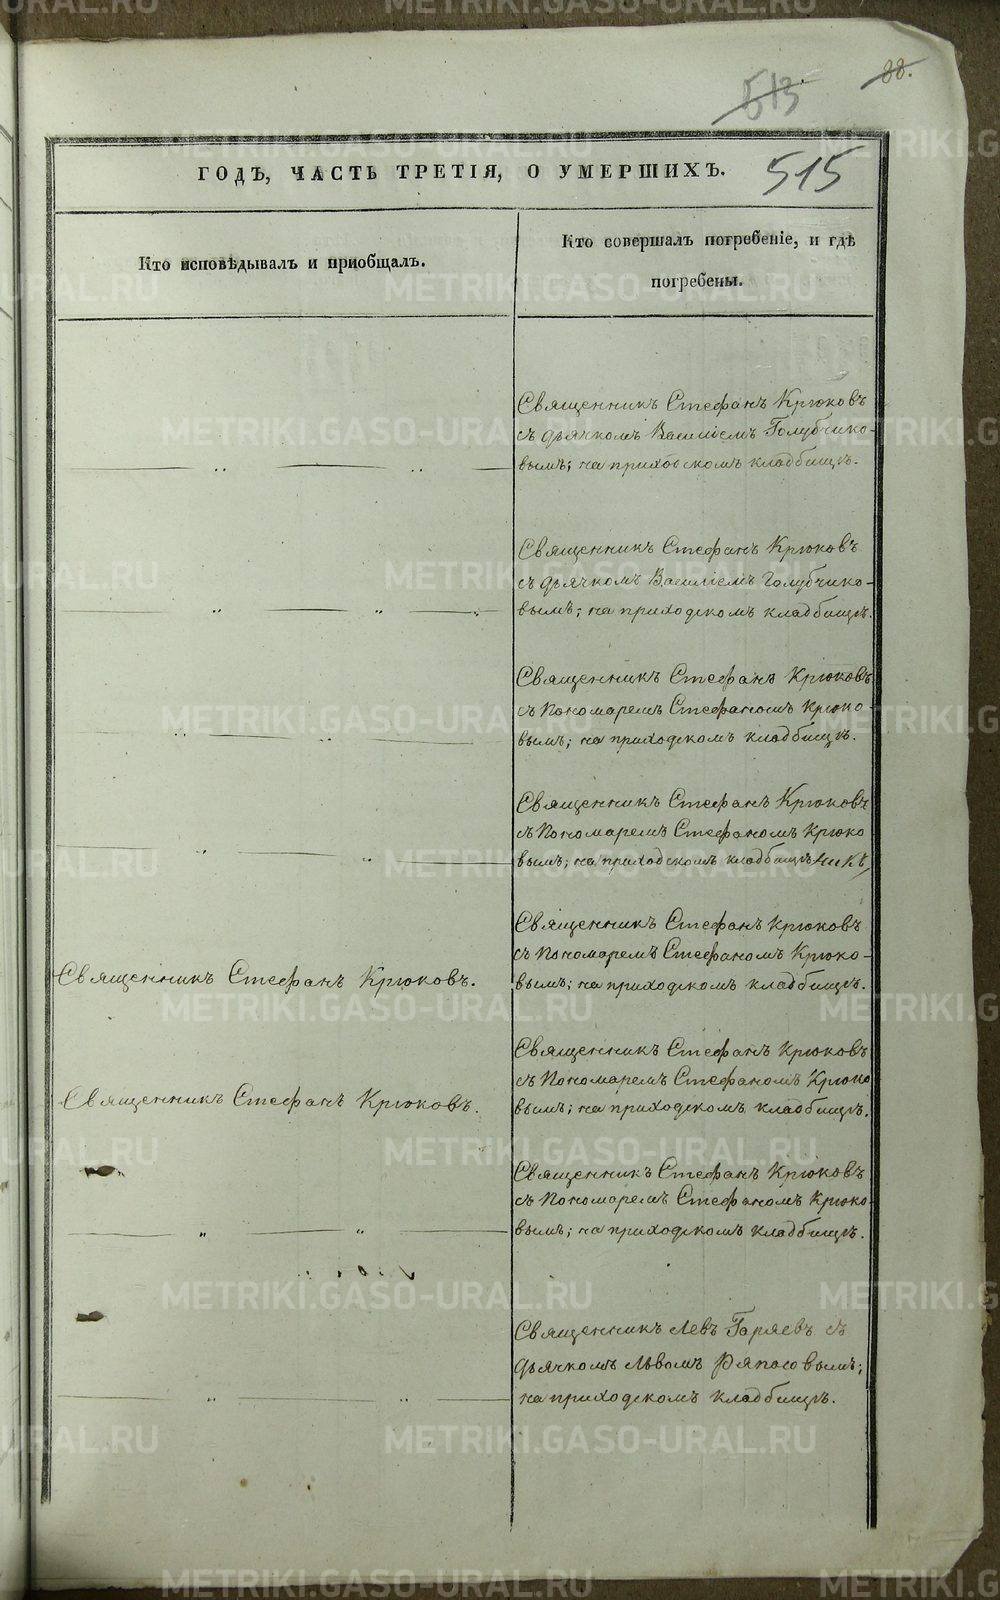 88.
513
ГОДЪ, ЧАСТЬ ТРЕТІЯ, О УМЕРШИХЪ.
515
Кто исповѣдывалъ и пріобщалъ.
Кто совершалъ погребеніе, и гдѣ
погребены.
Священникъ Стефанъ Крюковъ
съ дьячкомъ Василіемъ Голубчико-
вымъ; на приходскомъ кладбищѣ.
Священникъ Стефанъ Крюковъ
съ дьячкомъ Василіемъ Голубчико-
вымъ; на приходскомъ кладбищѣ.
Священникъ Стефанъ Крюковъ
съ Пономаремъ Стефаномъ Крюко-
вымъ; на приходскомъ кладбищѣ.
Священникъ Стефанъ Крюковъ
съ Пономаремъ Стефаномъ Крюко
вымъ; на приходскомъ кладбищѣ
Священникъ Стефанъ Крюковъ.
Священникъ Стефанъ Крюковъ
съ Пономаремъ Стефаномъ Крюко-
вымъ; на приходскомъ кладбищѣ.
Священникъ Стефанъ Крюковъ.
Священникъ Стефанъ Крюковъ
съ Пономаремъ Стефаномъ Крюко
вымъ; на приходскомъ кладбищѣ.
Священникъ Стефанъ Крюковъ
съ Пономаремъ Стефаномъ Крюко-
вымъ; на приходскомъ кладбищѣ.
Священникъ Левъ Гаряевъ съ
дьячкомъ Львомъ Ряпосовымъ;
на приходскомъ кладбищѣ.
METRIKI.GASO-URAL.RU